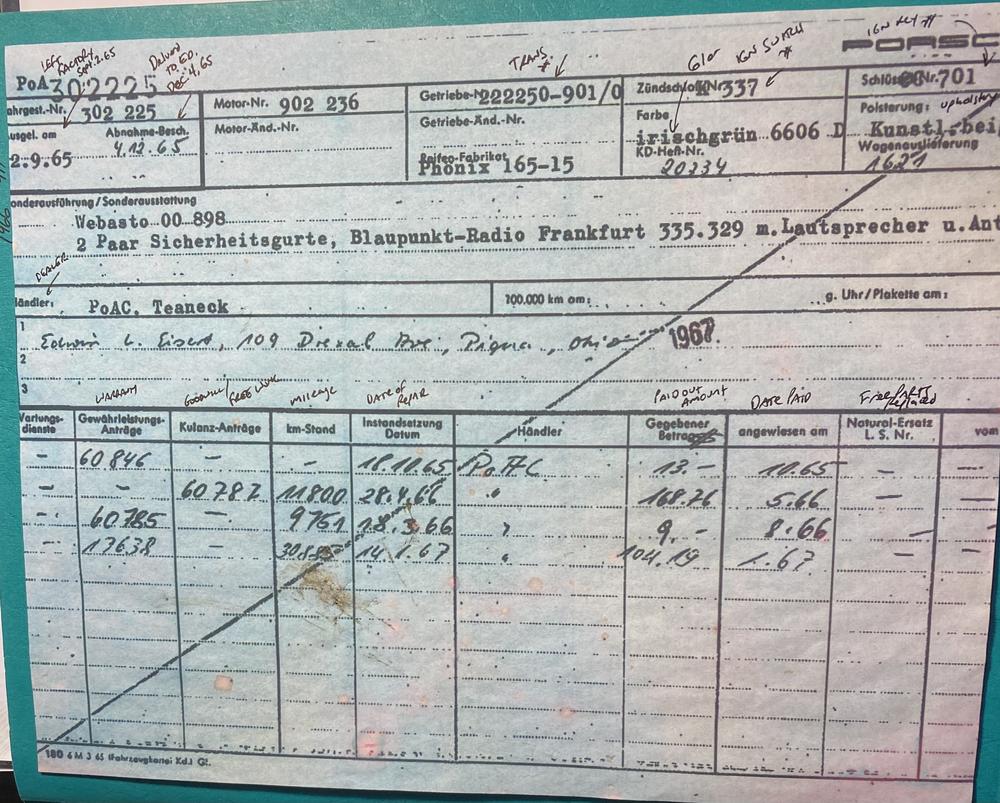 LEFT FACTORY Sept. 2. 65
Delivered TO ED. Dec 4, 65
TRANS #
IGN SWITCH #
IGN KEY #
PORSC
PoA 302225
ahrgest.-Nr. 302 225
Motor-Nr. 902 236
Getriebe-N 222250-901/0
Zündschloß KN 337
Schlüssel-Nr. 701
usgel. am
Abnahme-Besch.
Motor-Änd.-Nr.
Getriebe-Änd.-Nr.
Farbe
Polsterung: upholstery
2.9.65
4.12.65
irischgrün 6606 D
Kunstl.bei
Reifen-Fabrikat
Phönix 165-15
KD-Heft-Nr.
20334
Wagenauslieferung
1621
onderausführung/Sonderausstattung
Webasto 00 898
2 Paar Sicherheitsgurte, Blaupunkt-Radio Frankfurt 335.329 m.Lautsprecher u.Ant
DEALER
ändler: PoAC, Teaneck
100.000 km am:
g. Uhr/Plakette am:
1 Edwin L. Eisert, 109 Drexal Ave, Piqua, Ohio 1967.
2
3
WARRANTY
GOODWILL/FREE WORK
mileage
DATE OF REPAIR
PAID OUT AMOUNT
DATE PAID
Free PARTS Replaced
Wartungs-dienste
Gewährleistungs-Anträge
Kulanz-Anträge
km-Stand
Instandsetzung Datum
Händler
Gegebener Betrag
angewiesen am
Natural-Ersatz L. S. Nr.
vom
– 60846 – – 18.10.65 PoAC 13.– 10.65 – –
– – 60787 11800 28.4.66 " 168.76 5.66 –
– 60785 – 9751 18.3.66 " 9.- 8.66 – –
– 13638 – 14.1.67 " 104.19 1.67 – –
180 6 M 3 65 (Fahrzeugkartei Kd.) G!.